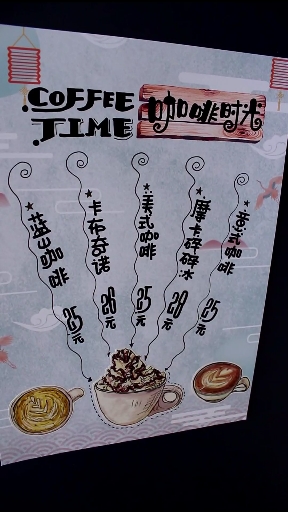 COFFEE
TIME
咖啡时光
卡布奇诺
28元
美式咖啡
25元
摩卡碎碎冰
28元
意式咖啡
25元
咖啡
25元